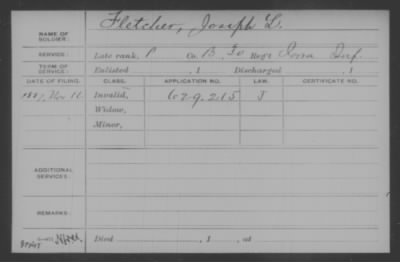 NAME OF SOLDIER: Fletcher, Joseph L.
SERVICE: Late rank, P Co. B, Reg't Iowa Inf.
TERM OF SERVICE: Enlisted , 1 Discharged , 1
DATE OF FILING. CLASS. APPLICATION NO. LAW. CERTIFICATE NO.
1887, Nov 12 Invalid, 629.215 J
Widow,
Minor,
ADDITIONAL SERVICES:
REMARKS:
Died , 1 , at